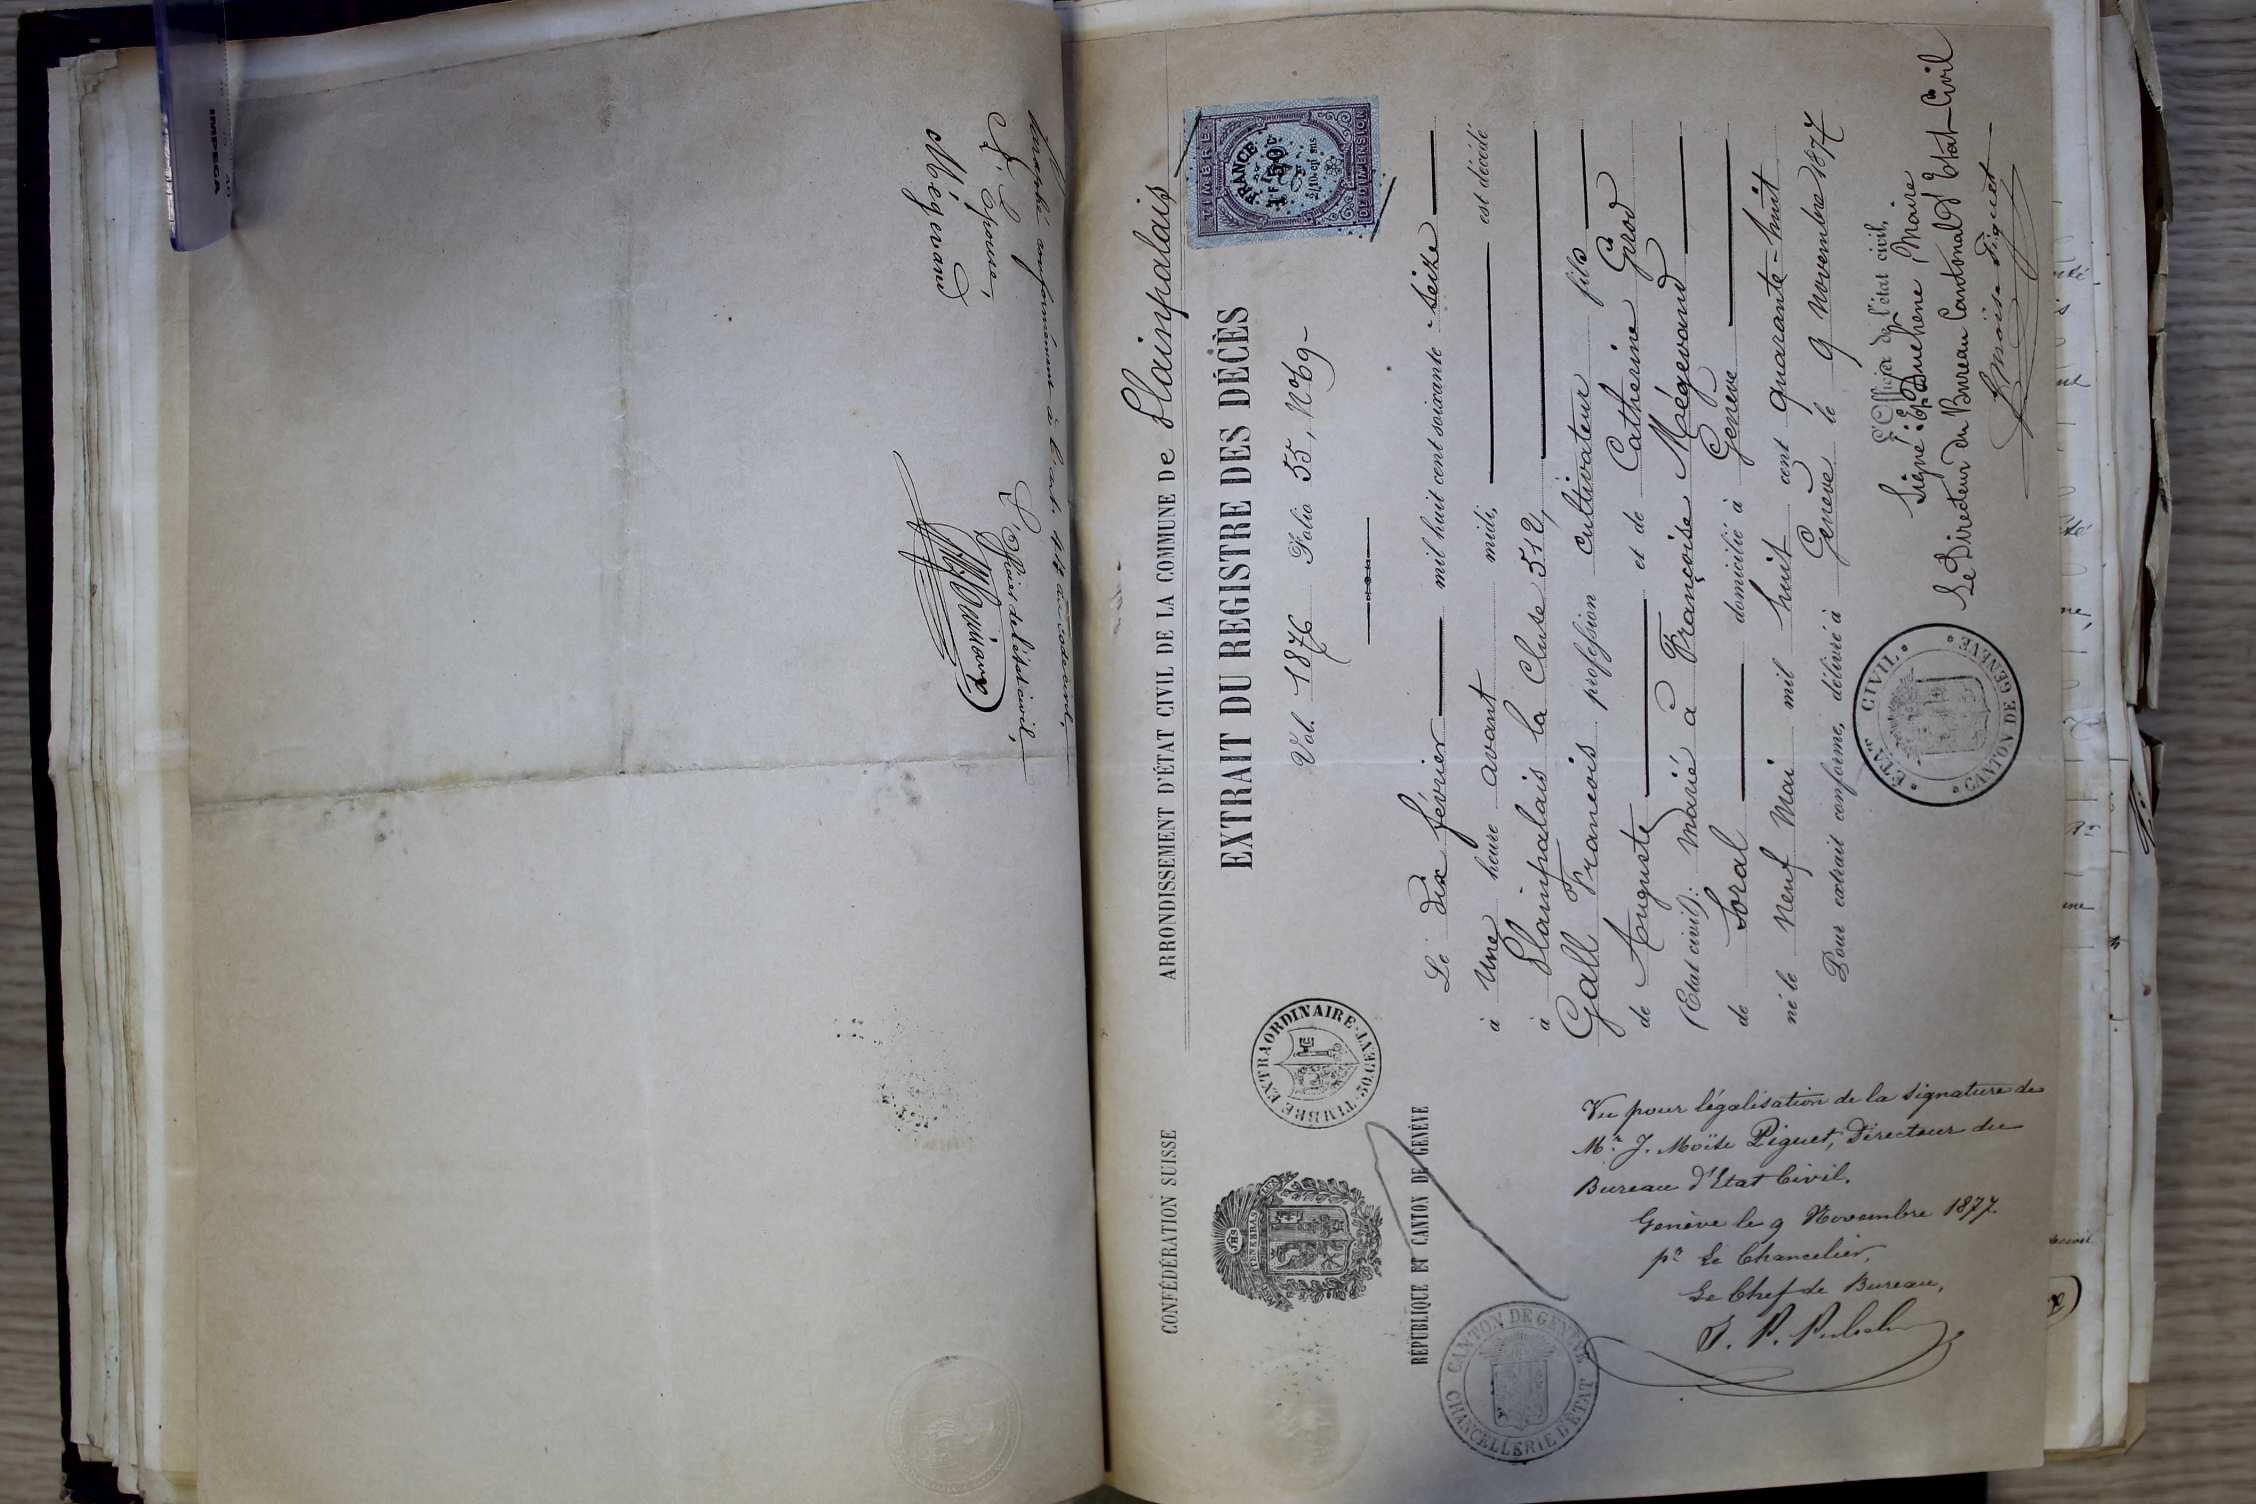 Annexé conformément à l'art. 44 du code civil,
F. L'Epouse,
Mégevand
L'Officier de l'état civil,
CONFÉDÉRATION SUISSE
RÉPUBLIQUE ET CANTON DE GENÈVE
TIMBRE EXTRAORDINAIRE
50 CENT.
ARRONDISSEMENT D'ÉTAT CIVIL DE LA COMMUNE DE Plainpalais
EXTRAIT DU REGISTRE DES DÉCÈS
Vol. 1876 Folio 55, N° 69-
TIMBRE
FRANCE
2/10 en sus
DE DIMENSION
Le dix février mil huit cent soixante-seize
à une heure avant midi, est décédé
à Plainpalais la Cluse 512,
Gall François profession cultivateur fils
de Auguste et de Catherine Girod
(Etat civil): marié à Françoise Mégevand
de Soral domicilié à Genève
né le neuf Mai mil huit cent quarante-huit
Pour extrait conforme, délivré à Genève le 9 Novembre 1877
L'Officier de l'état civil,
Signé: E. Duchêne Maire
Le Directeur du Bureau Cantonal d'Etat-Civil
J. Moïse Piguet
ETAT CIVIL
CANTON DE GENÈVE
Vu pour légalisation de la signature de
Mr. J. Moïse Piguet, Directeur du
Bureau d'Etat Civil.
Genève le 9 Novembre 1877.
pr. Le Chancelier,
Le Chef de Bureau,
CANTON DE GENÈVE
CHANCELLERIE D'ETAT